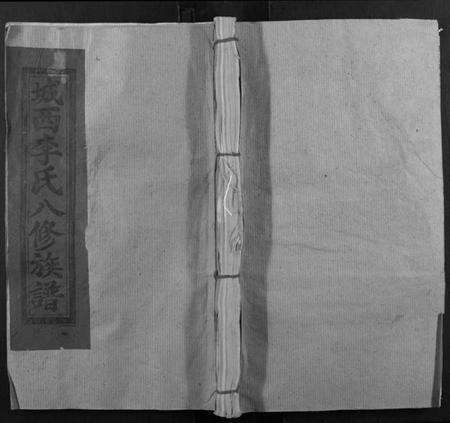 城西李氏八修族譜